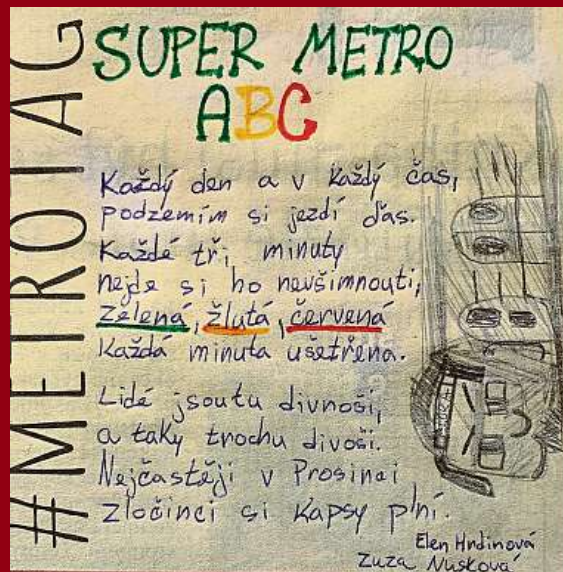 #METROTAG
SUPER METRO
ABC
Každý den a v každý čas,
podzemím si jezdí ďas.
Každé tři minuty
nejde si ho nevšimnouti,
Zelená, žlutá, červená
Každá minuta ušetřena.
Lidé jsoutu divnoši,
a taky trochu divoši.
Nejčastěji v Prosinci
zločinci si kapsy plní.
Elen Hrdinová
Zuza Nusková